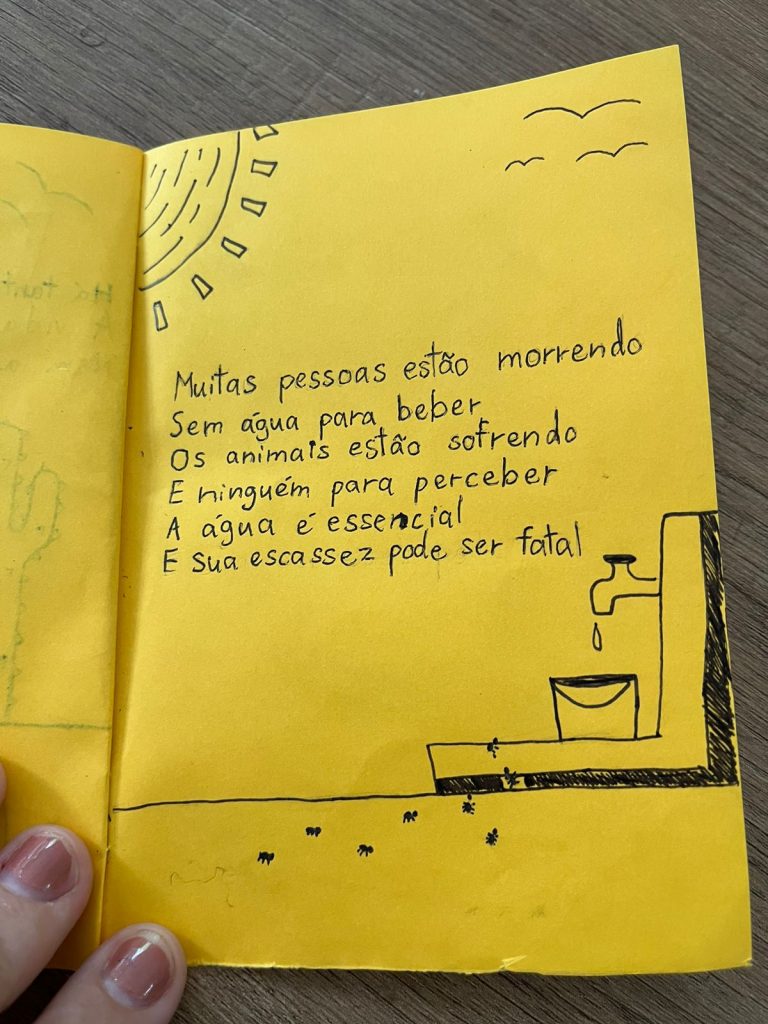 Muitas pessoas estão morrendo
Sem água para beber
Os animais estão sofrendo
E ninguém para perceber
A água é essencial
E sua escassez pode ser fatal